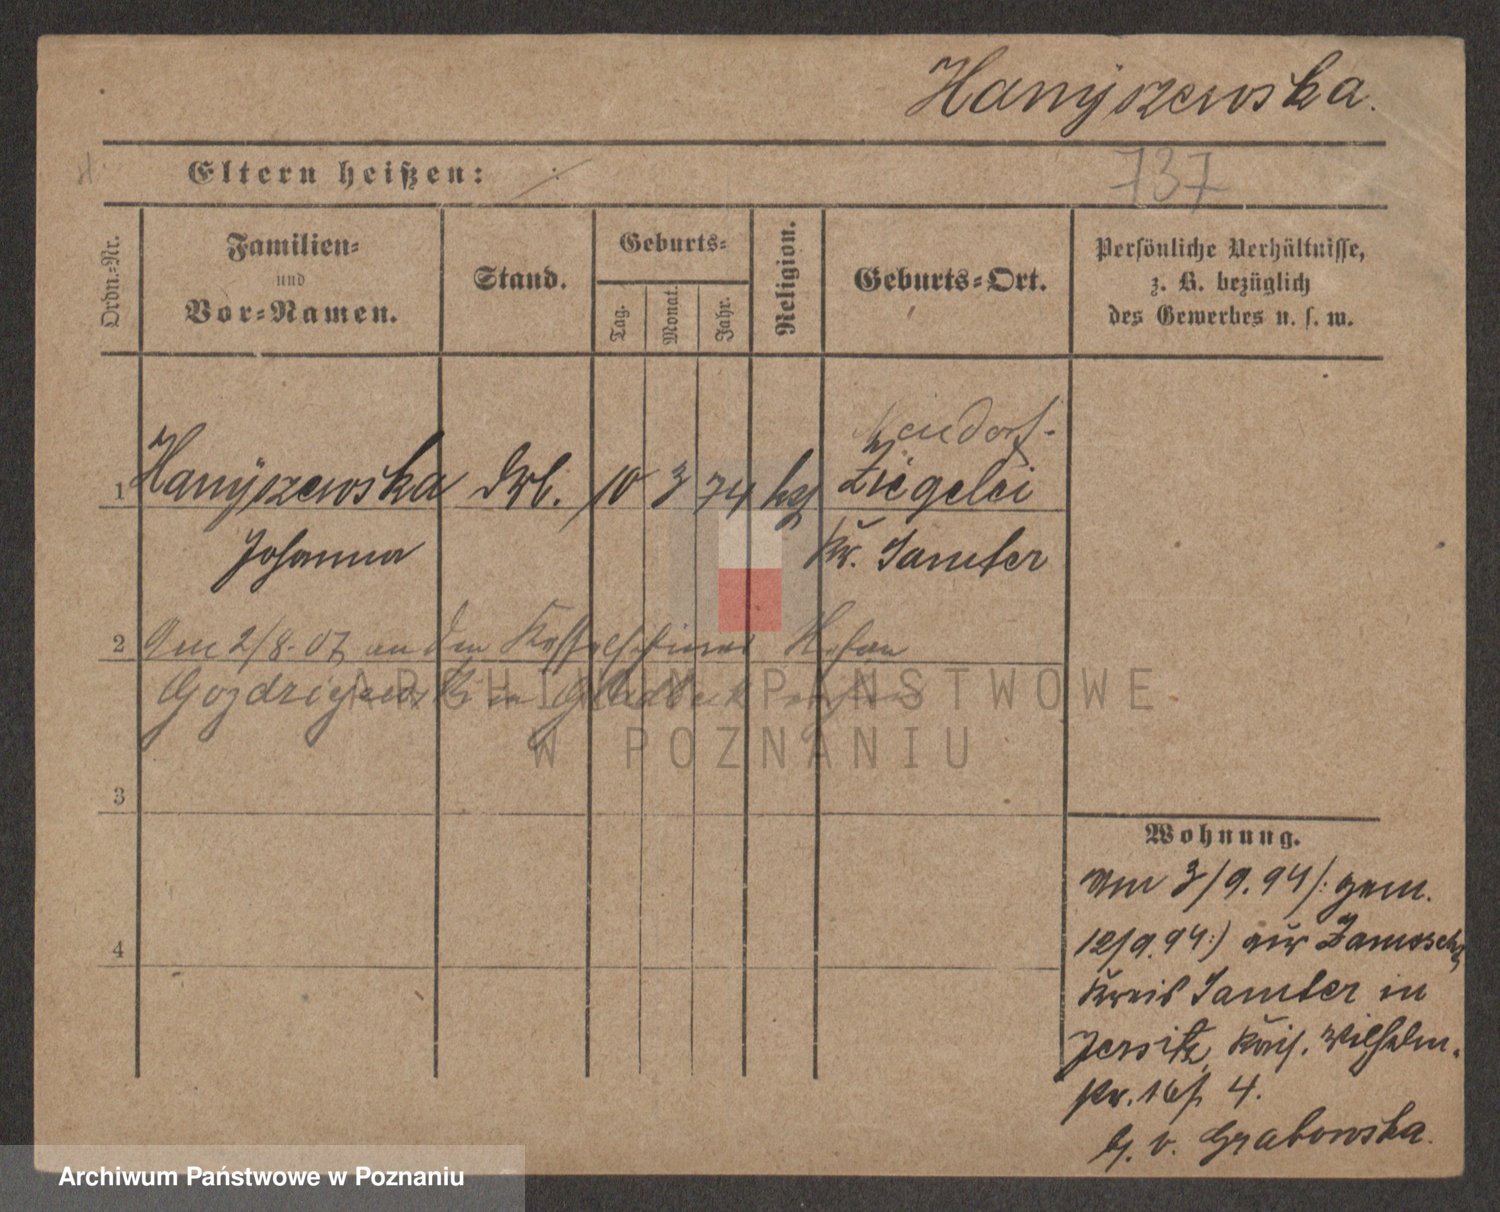 Hanyszewska.
Eltern heißen:
737
Ordn.-Nr.
Familien-
und
Vor-Namen.
Stand.
Geburts-
Tag.
Monat.
Jahr.
Religion.
Geburts-Ort.
Persönliche Verhältnisse,
z. B. bezüglich
des Gewerbes u. s. w.
Neudorf-
1 Hanyszewska 10 3 74 Ziegelei
Johanna Kr. Samter
2 Am 2/8.07 an den Johan
in Gladbeck
3
4
Wohnung.
am 3/9.94 /: gem.
12/9.94 :) aus
Kreis Samter in
Jersitz, Wilhelm-
str. 16/ 4.
b. v. Grabowska.
ARCHIWUM PAŃSTWOWE
W POZNANIU
Archiwum Państwowe w Poznaniu